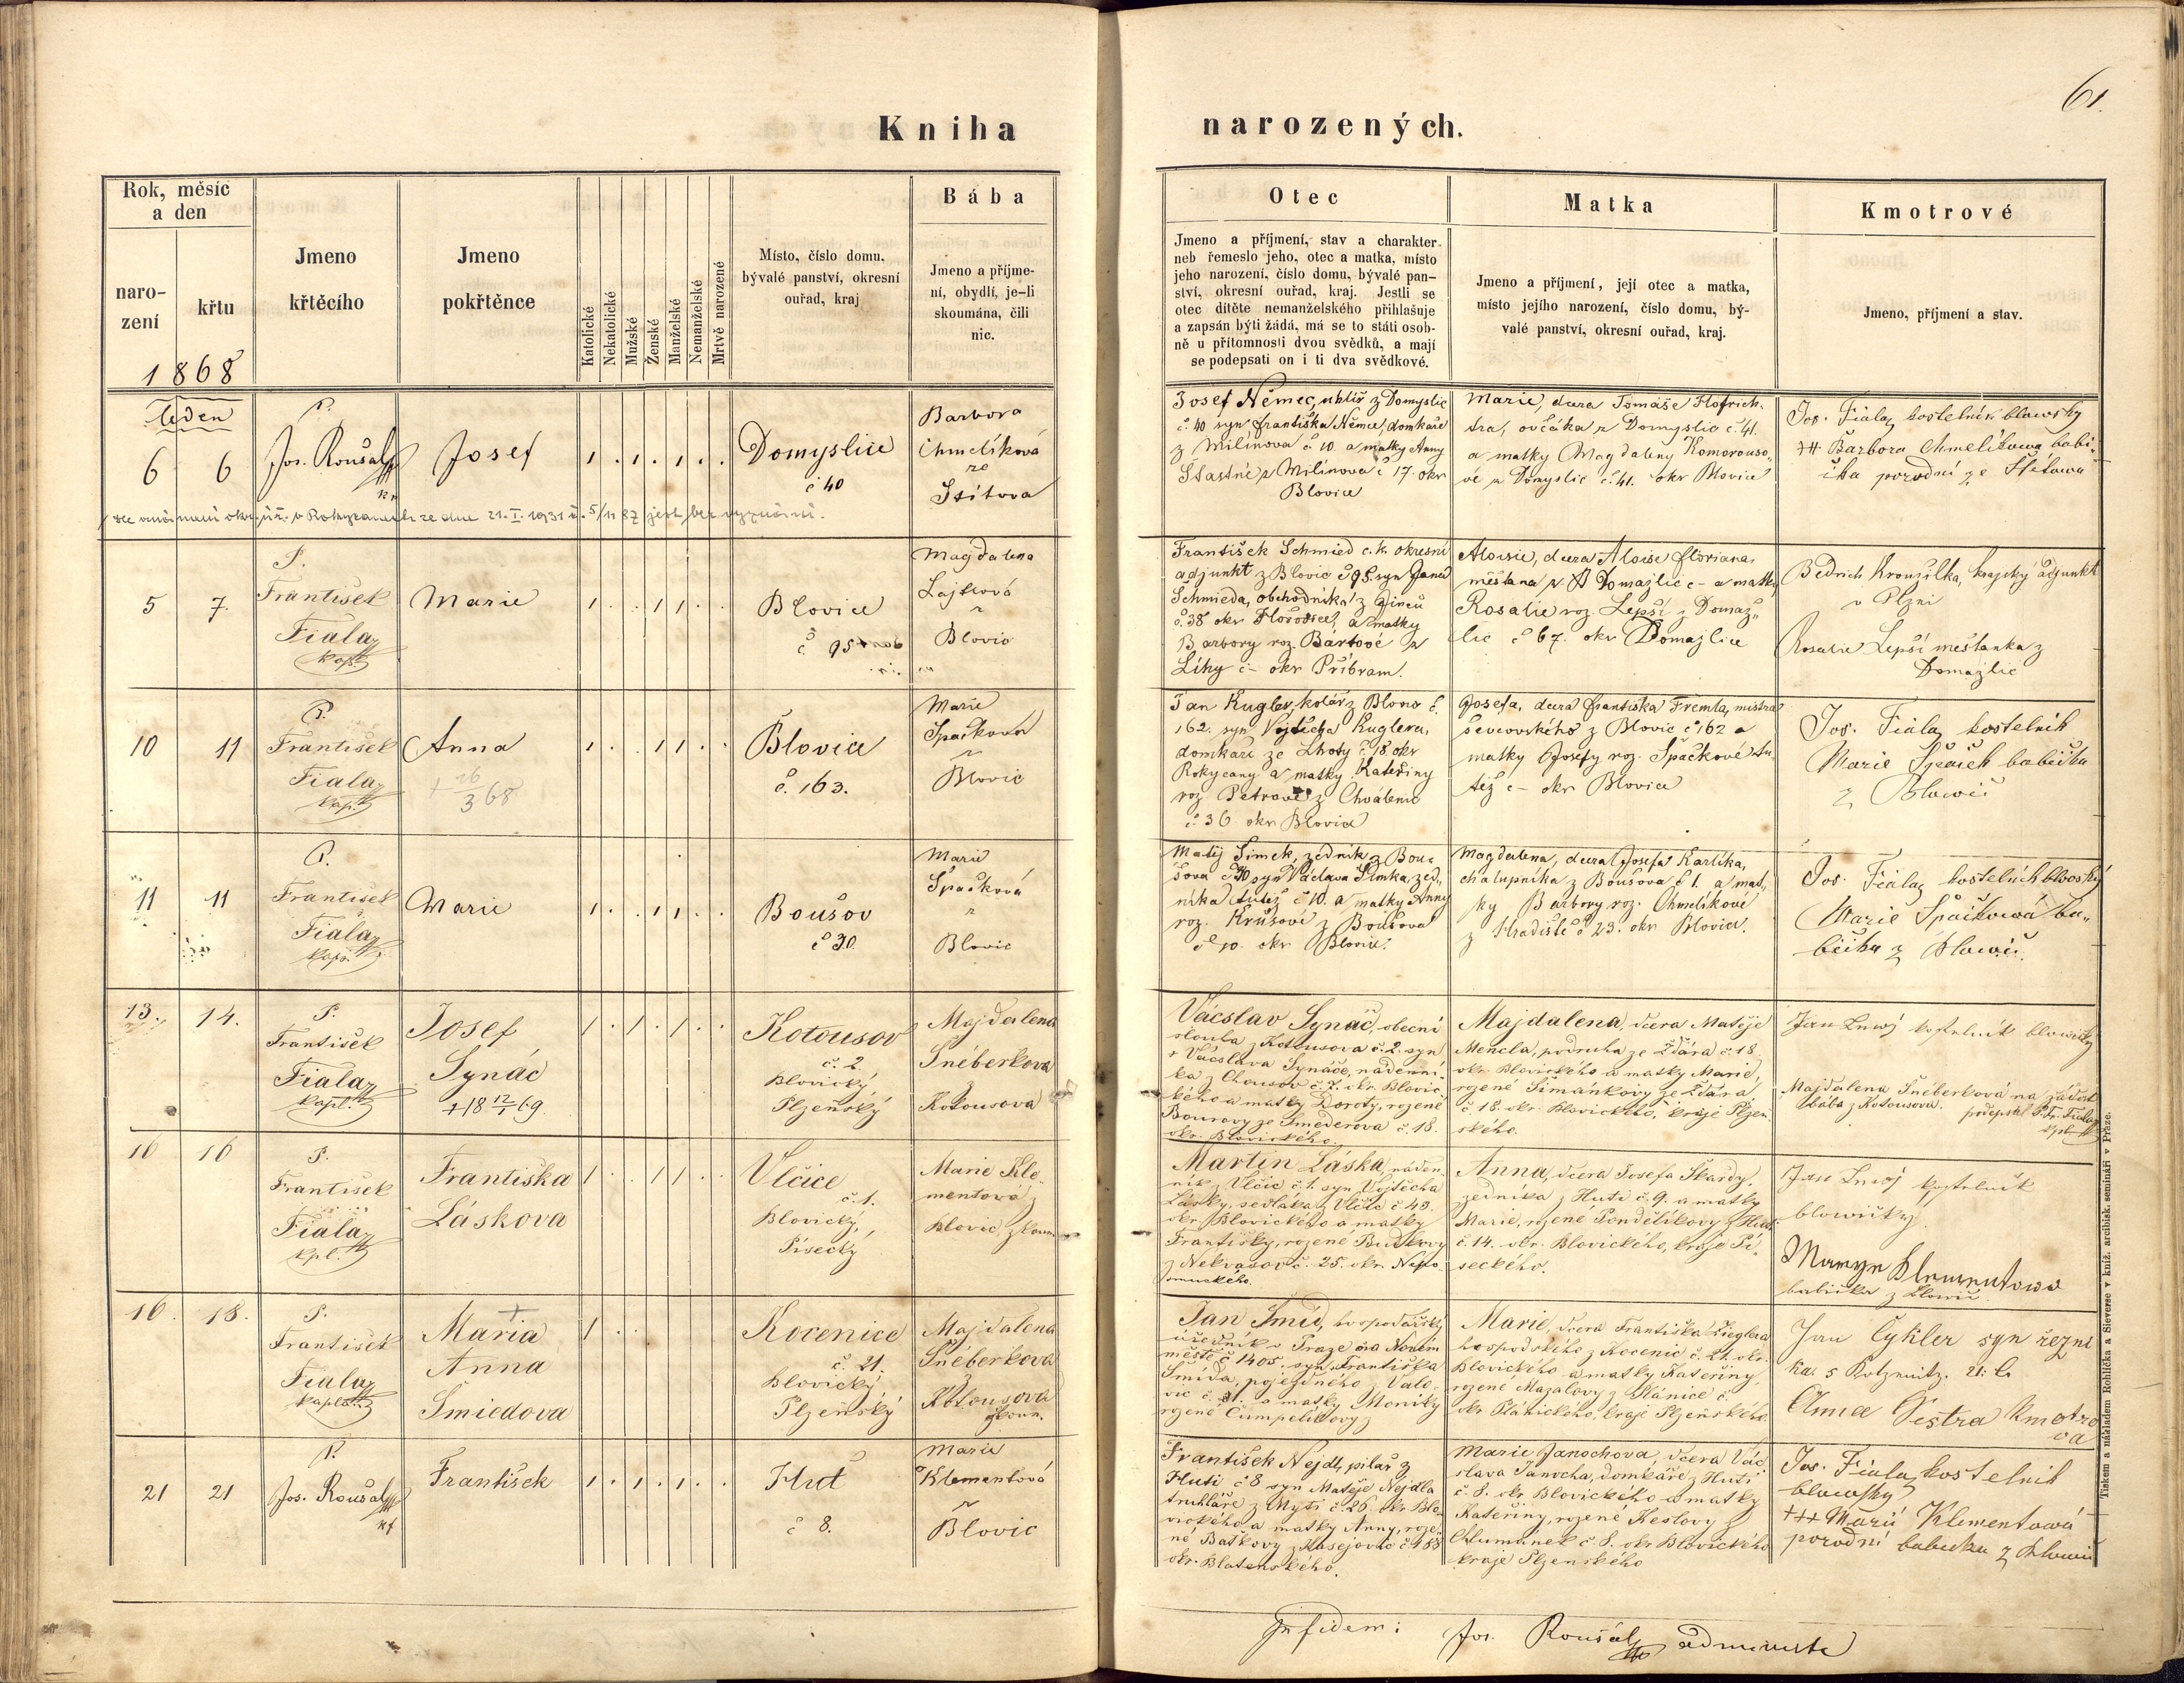 61.
Kniha narozených.
Rok, měsíc
a den
naro-
zení
křtu
1868
Jmeno
křtěcího
Jmeno
pokřtěnce
Katolické
Nekatolické
Mužské
Ženské
Manželské
Nemanželské
Mrtvě narozené
Místo, číslo domu,
bývalé panství, okresní
ouřad, kraj
Bába
Jmeno a příjme-
ní, obydlí, je-li
skoumána, čili
nic.
Otec
Jmeno a příjmení, stav a charakter
neb řemeslo jeho, otec a matka, místo
jeho narození, číslo domu, bývalé pan-
ství, okresní ouřad, kraj. Jestli se
otec dítěte nemanželského přihlašuje
a zapsán býti žádá, má se to státi osob-
ně u přítomnosti dvou svědků, a mají
se podepsati on i ti dva svědkové.
Matka
Jmeno a příjmení, její otec a matka,
místo jejího narození, číslo domu, bý-
valé panství, okresní ouřad, kraj.
Kmotrové
Jmeno, příjmení a stav.
leden
6 6
P.
Jos. Roušal
Josef
Domyslice
č 40
Barbora
Chmelíková
ze
Štítova
Josef Němec, uhlíř z Domyslic
č. 40 syn Františka Němce, domkaře
z Milínova č 10 a matky Anny
Šťastné z Milínova č 17. okr
Blovice
Marie, dcera Tomáše Hofrich-
tra, ovčáka z Domyslic č. 41.
a matky Magdaleny Komorouso-
vé z Domyslic č. 41. okr Blovice
Jos. Fiala kostelník blowský
+++ Barbora Chmelíkowa babi-
čka porodní ze Štítowa
5 7.
P.
František
Fiala
kap.
Marie
Blovice
č 95
Magdalena
Lajtlová
z
Blovic
František Schmied c. k. okresní
adjunkt z Blovic č 95. syn Jana
Schmieda, obchodníka z Jinců
č. 38 okr Hořovice, a matky
Barbory roz. Bártové z
Líhy č – okr Příbram.
Aloisie, dcera Aloise Floriana,
měšťana z Domažlic č – a matky
Rosalie roz. Lepší z Domaž-
lic č 67. okr Domažlice
Bedřich Kroužilka, krajský adjunkt
v Plzni
Rosalie Lepší měšťanka z
Domažlic
10 11
P.
František
Fiala
kap.
Anna
+ 16/3 68
Blovice
č. 163.
Marie
Špačková
z
Blovic
Jan Kugler, kolář z Blovic č.
162. syn Vojtěcha Kuglera,
domkaře ze Lhoty č 18 okr
Rokycany a matky Kateřiny
roz. Petrové z Chválenic
č. 36 okr Blovice
Josefa, dcera Františka Fremla, mistra
ševcovského z Blovic č 162 a
matky Josefy roz. Špačkové tu-
též č – okr Blovice
Jos. Fiala kostelník
Marie Špaček babička
z Blowic
11 11
P.
František
Fiala
kap.
Marie
Boušov
č 30.
Marie
Špačková
z
Blovic
Matěj Šimek, zedník z Bou-
šova č 30 syn Václava Šimka, zed-
níka tutéž č 10. a matky Anny
roz. Krušové z Boušova
č 10. okr Blovice.
Magdalena, dcera Josefa Karlíka,
chalupníka z Boušova č 1. a mat-
ky Barbory roz. Chmelíkové
z Hradiště č 23. okr Blovice.
Jos. Fiala kostelník blovský
Marie Špačková ba-
bička z Blowic.
13. 14.
P.
František
Fiala
kapl.
Josef
Synáč
+ 18 12/1 69
Kotousov
č. 2
Blovický
Plzeňský
Majdalena
Šnéberková
z
Kotousova
Vácslav Synáč, obecní
sloužka z Kotousova č. 2. syn
+ Vácslava Synáče, nádenní-
ka z Chousov č. 7. okr. Blovic-
kého a matky Doroty, rozené
Bourovy ze Směderova č 18.
okr. Blovického.
Majdalena, dcera Matěje
Mencla, podruha ze Ždára č. 18
okr. Blovického a matky Marie,
rozené Šimánkovy ze Ždára
č. 18. okr. Blovického, kraje Plzeň-
ského.
Majdalena Šnéberková na žádost
bába z Kotousova. podepsal P. Fr. Fiala
kpl.
16 16
P.
František
Fiala
kpl.
Františka
Láskova
Vlčice
č. 1.
Blovický,
Písecký
Marie Kle-
mentová
z
Blovic, zkoum.
Martin Láska, náden-
ník z Vlčic č. 1. syn Vojtěcha
Lásky, sedláka z Vlčic č 49.
okr. Blovického a matky
Františky, rozené Budkovy
z Nekvasov č. 25. okr. Nepo-
muckého.
Anna, dcera Josefa Škardy,
zedníka z Huti č. 9. a matky
Marie, rozené Pondělíkovy z Huti
č. 14. okr. Blovického, kraje Pí-
seckého.
blowický
Marye Klementowa
babička z Blowic.
16. 18.
P.
František
Fiala
kaplan
+
Maria
Anna
Šmiedova
Kocenice
č. 21.
Blovický
Plzeňský
Majdalena
Šnéberkova
z
Kotousova
zkoum.
Jan Šmíd, hospodářský
úředník v Praze na Novém
městě č 1405. syn Františka
Šmída, pojezdného z Vale-
č. 21. a matky Moniky
rozené Čumpelíkovy z
Marie, dcera Františka Zieglera
hospodského z Kocenic č. 21. okr.
Blovického a matky Kateřiny,
rozené Mazalovy z Plánice č.
okr Plánického, kraje Plzeňského.
Jan Cykler syn řezní
ka.
Anna Sestra kmotro
va
21 21
P.
Jos. Roušal
František
Huť
č 8.
Marie
Klementová
z
Blovic
František Nejdl, pilař z
Huti č 8 syn Matěje Nejdla
truhláře z Myti č. 26 okr Blo-
vického a matky Anny, roze-
né Baťkovy z Kasejovic č 188
okr. Blatenského.
Marie Janochova, dcera Vác
slava Janocha, domkáře z Huti
č. 8. okr Blovického a matky
Kateřiny, rozené Keslovy z
Chlumánek č. 8. okr Blovického
kraje Plzenského
Jos. Fiala kostelník
blowský
+++ Marie Klementowá
porodní babička z Blowic
In fidem: Jos. Roušal administr
Tiskem a nákladem Rohlíčka a Sieverse v kníž. arcibisk. semináři v Praze.